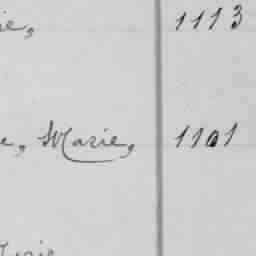 ie, 1113
e, Marie, 1101